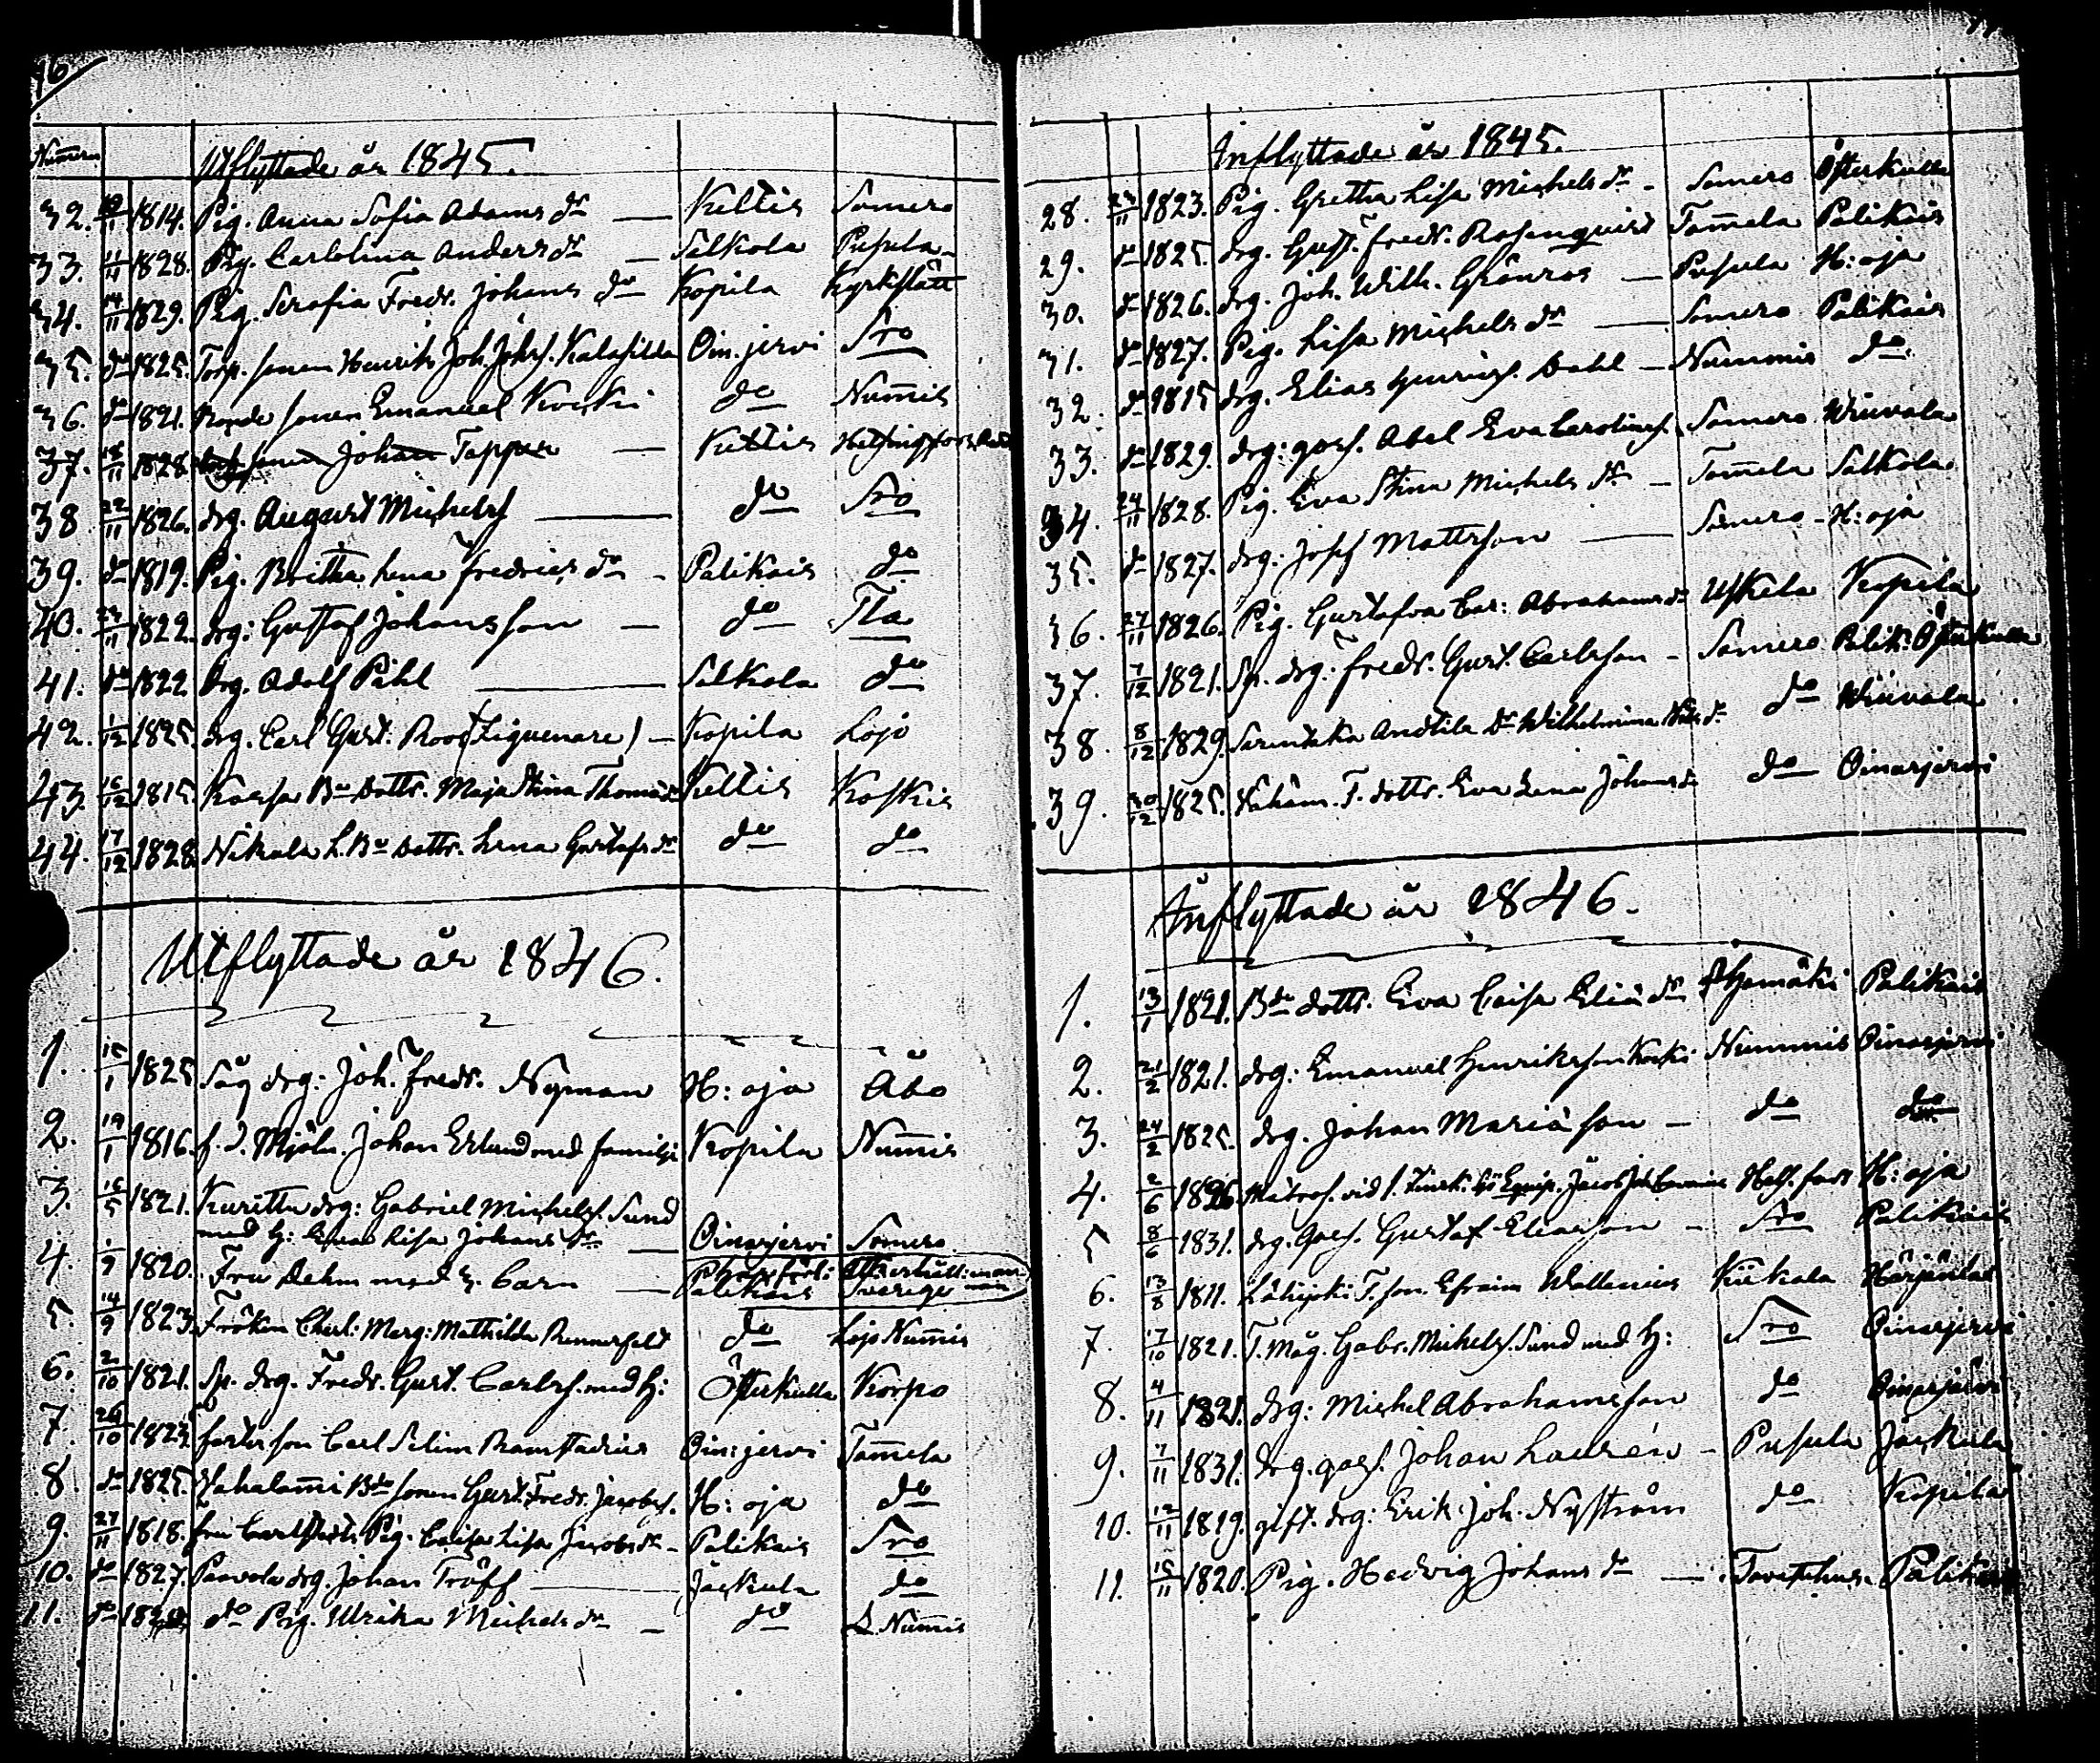 Numero
Utflyttade år 1845.
32. 1814. Pig. Anna Sofia Adams dr — Kettis Somero
33. 11/11 1828. Pig. Carlolina Anders dr — Salkola Pusula
34. 14/11 1829. Pig. Serafia Fredr. Johans dr Kopila Kyrkslätt
35. do 1825. Torp. sonen Henrik Joh. Johss. Oin. jervi Sro
36. do 1821. sonen Emanuel Koski do Num̄is
37. 18/11 1828. sonen Johan Tappur — Kettis Helsingfors
38 22/11 1826. drg. August Michelss — do Sro
39. do 1819. Pig. Britha Lena Fredrics dr - Palikais do
40. 24/11 1822. drg: Gustaf Johansson — do Tla
41. do 1822 Drg. Adolf Pihl — Salkola do
42. 1/12 1825. drg. Carl Gust. Roos (Ziguenare) — Kopila Lojo
43. 16/12 1815. Bo Dottr. Maja Stina Thomas dr Kettis Koskis
44. 17/12 1828. Nikala L. Bo Dottr. Lena Gustafs dr do do
Utflyttade år 1846.
1. 15/1 1825 Såg drg: Joh. Fredr. Nyman H: oja Åbo
2. 19/1 1816. f. d. Mjöln. Johan Erlund med familje Kopila Num̄is
3. 16/5 1821. Kuritta drg: Gabriel Michelss. Sund
med H: Eva Lisa Johans dr — Oinasjervi Somero
4. 1/9 1820. Fru Aehm med 2. Barn — Palikais Sverige
5. 14/9 1823. Fröken Charl: Marg: Mathilda Rennerfelt do Lojo Num̄is
6. 2/10 1821. Sp. drg. Fredr. Gust. Carlss. med H: Österkulla Korpo
7. 26/10 1823. son Carl Selim Ramstadius Oin: jervi Tam̄ela
8. do 1825. Bdo sonen Gust. Fredr. Jacobss. H: oja do
9. 27/11 1818. Pig. Caisa Lisa Jacobs dr - Palikais Sro
10. do 1827. Paavola drg. Johan Tröff — Jackula do
11. do do Pig. Ulrika Michels dr — do Num̄is
Inflyttade år 1845.
28. 24/11 1823. Pig. Gretha Lisa Michels dr - Somero Österkulla
29. do 1825. drg. Gust. Fredr. Rosenqvist Tam̄ela Palikais
30. do 1826. drg. Joh. Wilh. Grönros — Pusula H: oja
31. do 1827. Pig. Lisa Michels dr — Somero Palikais
32. do 1815 drg. Elias Henrics. Dahl — Nummis do
33. do 1829. drg: goss. Abel Eva Carolinas. Somero Wiuvala
34. 24/11 1828. Pig. Eva Stina Michels dr - Tam̄ela Salkola
35. do 1827. drg: Josef Mattsson — Somero - H: oja
36. 27/11 1826. Pig. Gustafva Car: Abrahams dr Uskela Kopila
37. 7/12 1821. Sp. drg. Fredr. Gust. Carlsson - Somero Palik: Österkulla
38. 8/12 1829. Andtila Dr Wilhelmina do Wiuvala
39. 30/12 1825. T. dottr. Eva Lena Johans dr do Oinasjervi
Inflyttade år 1846.
1. 13/1 1821. Bdo dottr. Eva Caisa Eliä dr Hyamäki Palikais
2. 21/2 1821. drg: Emanuel Henriksson Koski Nummis Oinasjervi
3. 24/2 1825. drg. Johan Mariäson — do do
4. 2/6 1826. Matros. vid 1. Finsk: Sjö Equip. Jacob Hels. fors H: oja
5 8/6 1831. drg. goss. Gustaf Eliasson — Sro Palikais
6. 13/8 1811. T. son. Efraim Wallenius Kiikala Härjänlak
7. 17/10 1821. T. Måg. Gabr. Michelss. Sund med H: Sro Oinasjervi
8. 4/11 1821. drg: Michel Abrahamsson do Oinasjärvi
9. 7/11 1831. drg. goss. Johan Laurén — Pusula Jackula
10. 12/11 1819. gift. drg: Erik Joh. Nyström do Kopila
11. 15/11 1820. Pig. Hedvig Johans dr — Tavasthus. Palikais